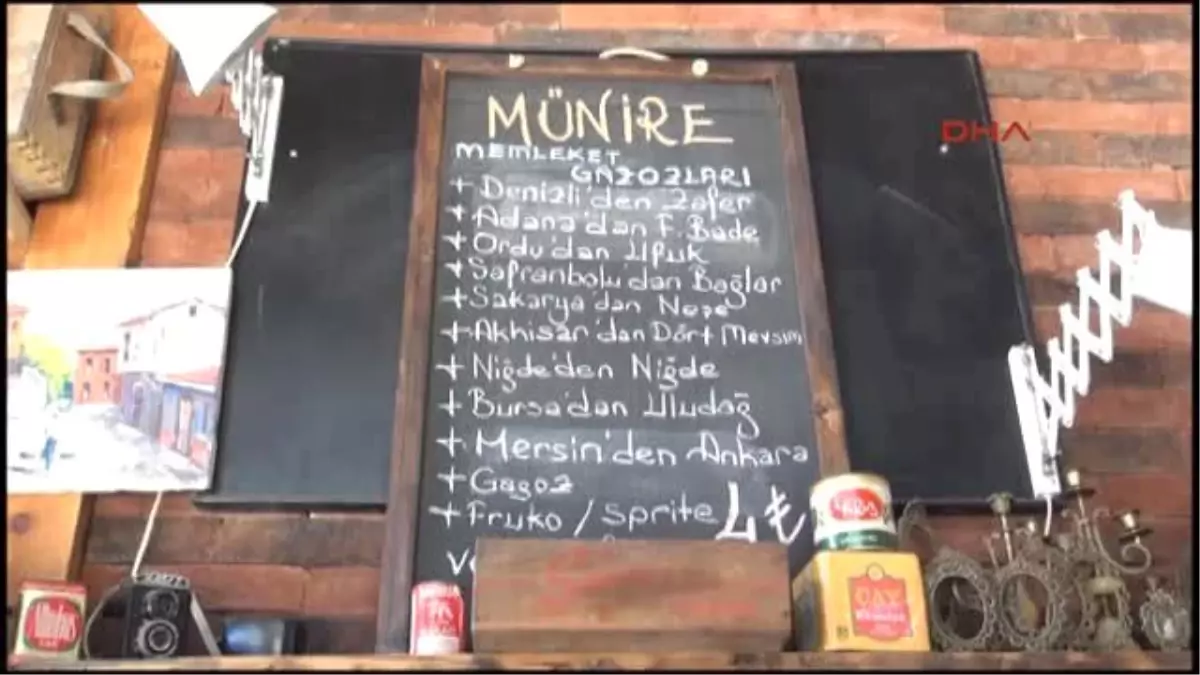 DHA
MÜNİRE
MEMLEKET
GAZOZLARI
+ Denizli'den Zafer
+ Adana'dan F. Bade
+ Ordu'dan Ufuk
+ Safranbolu'dan Bağlar
+ Sakarya'dan Neşe
+ Akhisar'dan Dört Mevsim
+ Niğde'den Niğde
+ Bursa'dan Uludağ
+ Mersin'den Ankara
+ Gazoz
+ Fruko / Sprite 4 ₺